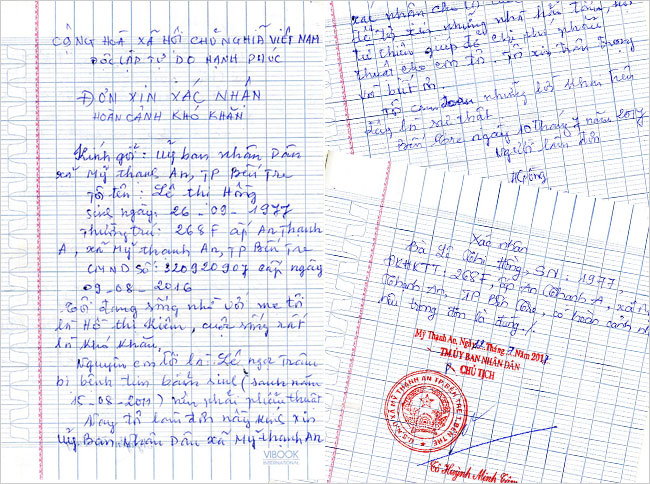 CỘNG HOÀ XÃ HỘI CHỦ NGHĨA VIỆT NAM
ĐỘC LẬP TỰ DO HẠNH PHÚC
ĐƠN XIN XÁC NHẬN
HOÀN CẢNH KHÓ KHĂN
Kính gửi: Uỷ ban nhân Dân
xã Mỹ thạnh An, TP Bến Tre
Tôi tên: Lê thị Hồng
sinh ngày: 26-09-1977
Thường trú: 268F ấp An Thạnh
A, xã Mỹ thạnh An, TP Bến Tre
CMND Số: 320920907 cấp ngày
09-08-2016
Tôi đang sống nhờ với mẹ tôi
là Hồ thị Kiêm, cuộc sống rất
là khó khăn.
Nguyên con tôi là: Lê ngọc Trâm
bị bệnh tim bẩm sinh (sanh năm
15-08-2011) nên phải phẫu thuật
Nay tôi làm đơn này kính xin
Uỷ Ban Nhân Dân xã Mỹ Thạnh An
VIBOOK
INTERNATIONAL
xác nhận cho tôi
để tôi xin những nhà hảo tâm
từ thiện giúp đỡ chi phí phẫu
thuật cho em tôi. Tôi xin trân trọng
và biết ơn.
Tôi cam đoan những lời khai trên
đây là sự thật
Bến Tre ngày 10 tháng 7 năm 2017
Người làm đơn
Hồng
Xác nhận
Bà Lê Thị Hồng, SN: 1977,
ĐKHKTT: 268F, ấp An Thạnh A, xã Mỹ
Thạnh An, TP Bến Tre, có hoàn cảnh như
nêu trong đơn là đúng./.
Mỹ Thạnh An, Ngày Tháng 7 Năm 2017
TM.ỦY BAN NHÂN DÂN
CHỦ TỊCH
Huỳnh Minh